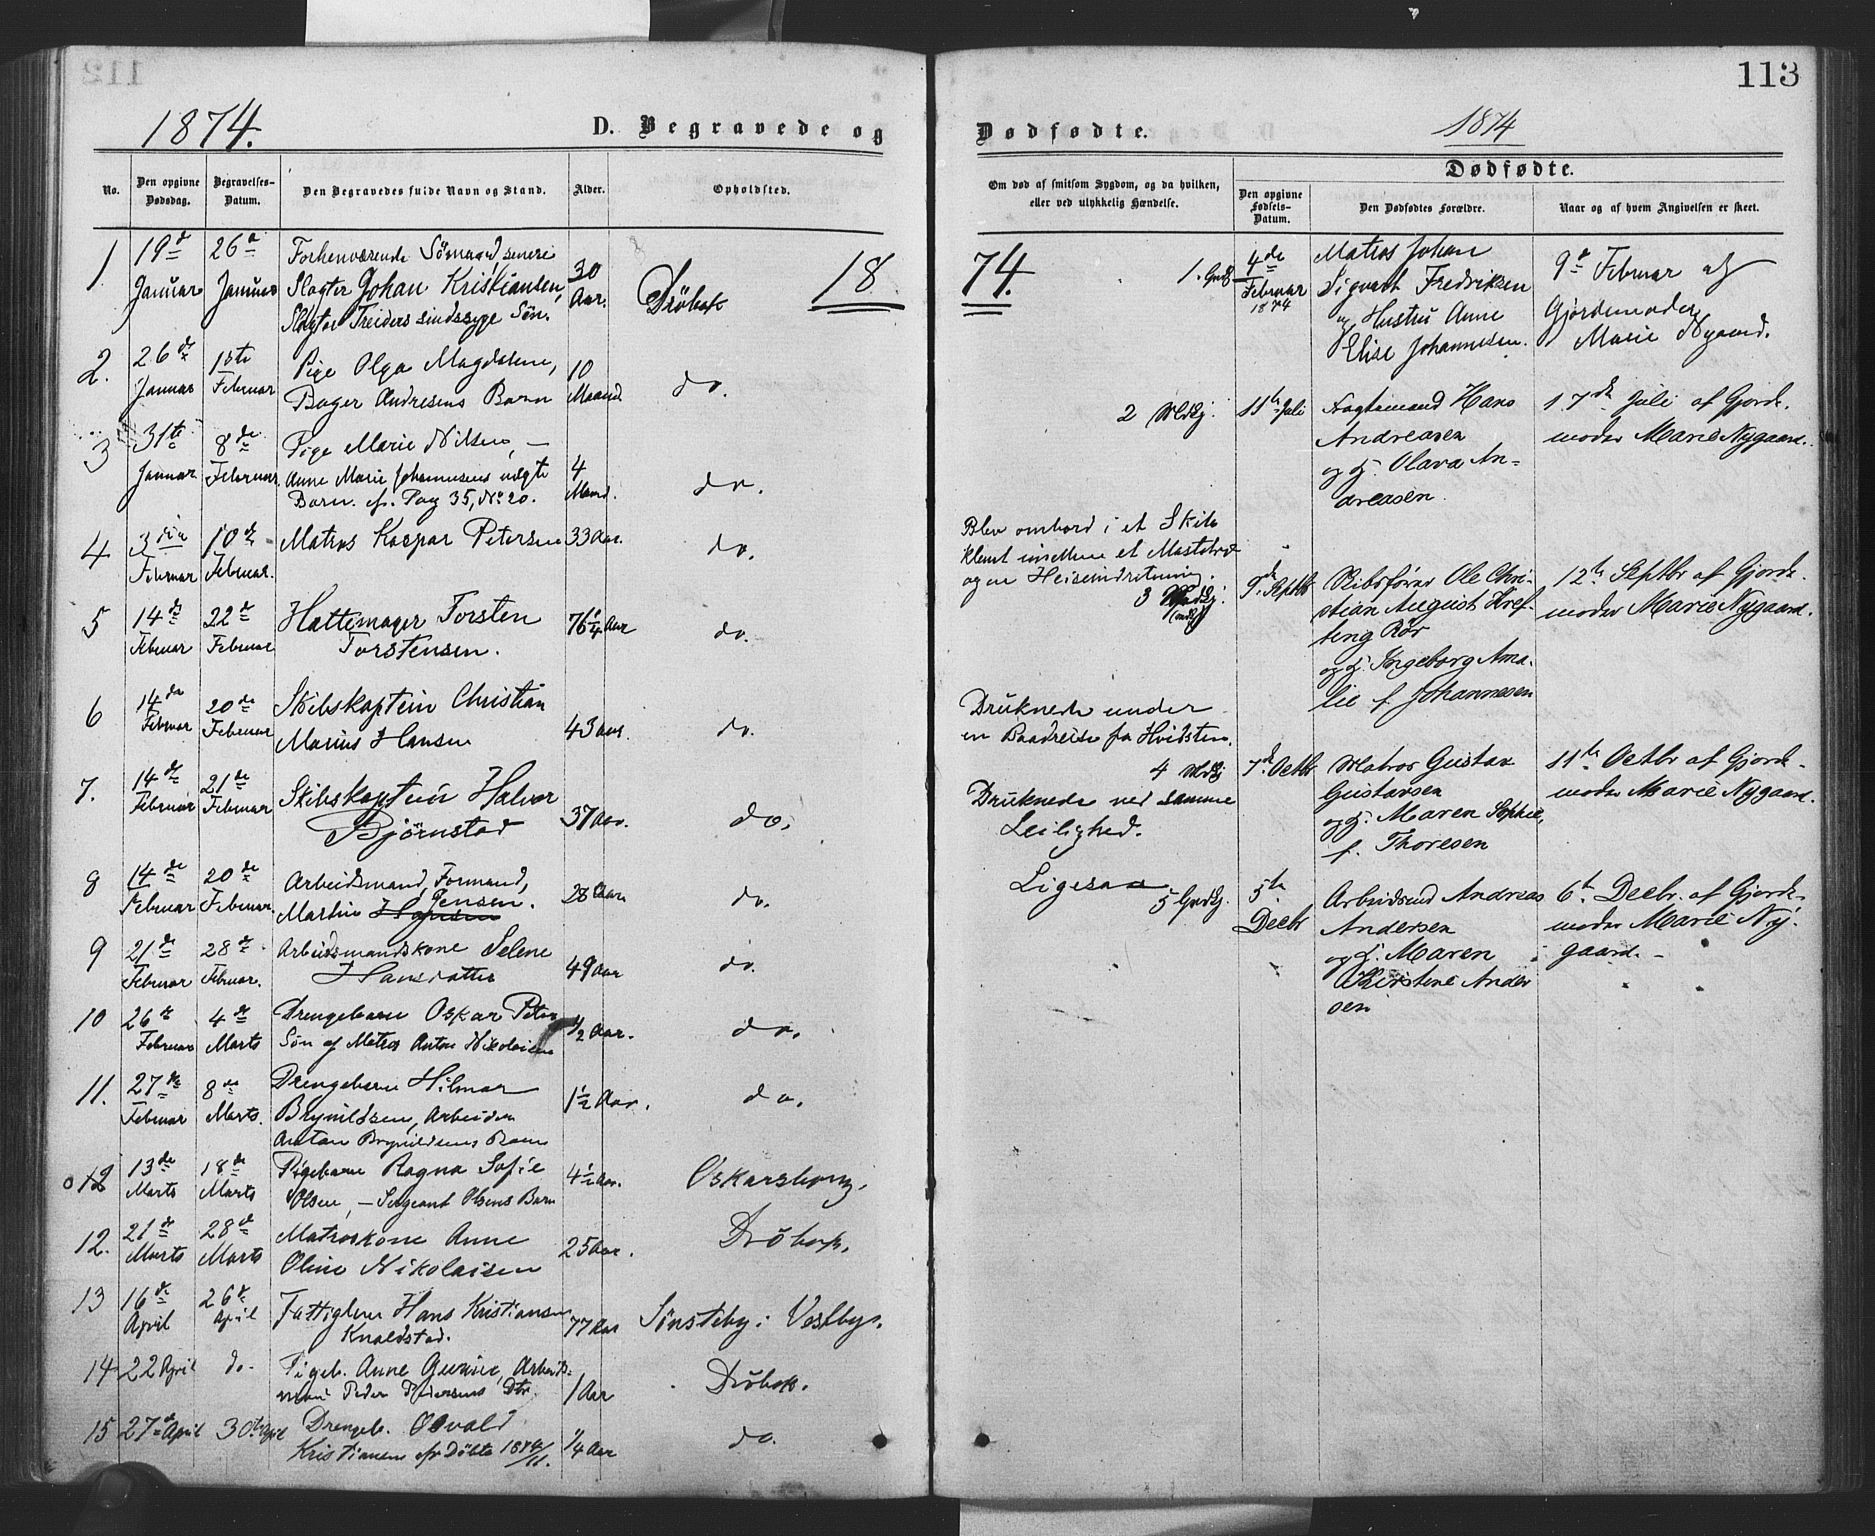 112
113
1874.
D. Begravede og
Dødfødte.
1874
Dødfødte.
No.
Den opgivne Dødsdag.
Begravelses-Datum.
Den Begravedes fulde Navn og Stand.
Alder.
Opholdsted.
Om død af smitsom Sygdom, og da hvilken,
eller ved ulykkelig Hændelse.
Den opgivne Fødsels-Datum.
Den Dødfødtes Forældre.
Naar og af hvem Angivelsen er skeet.
18
74.
1 19de Januar 26de Januar Forhenværende Sømand senere
Slagter Johan Kristiansen, 30 Aar. Drøbak
Slagter Treiders sindssyge Søn.
2. 26de Januar 1ste Februar Pige Olga Magdalene, 10 Maand. do.
Bager Andresens Barn
3 31te Januar 8de Februar Pige Marie Nilsen, –
Anne Marie Johannesens uægte 4 Maand. do.
Barn. cf. Pag 35, No 20.
4 3die Februar 10de Februar. Matros Kaspar Petersen 33 Aar. do.
5 14de Februar 22de Februar Hattemager Torsten 76 1/4 Aar do.
Torstensen.
6 14de Februar 20de Februar Skibskaptein Christian
Marius Hansen 43 Aar. do.
7. 14de Februar 21de Februar Skibskaptein Halvor
Bjørnstad 37 Aar. do.
8 14de Februar 20de Februar. Arbeidsmand, Formand,
Martin Hansen Jensen. 28 Aar do.
9 21de Februar 28de Februar. Arbeidsmandskone Selene
Hansdatter 49 Aar do.
10 26de Februar 4de Marts Drengebarn Oskar Peter
Søn af Matros Anton Nikolaisen 1/2 Aar. do.
11. 27de Februar 8de Marts. Drengebarn Hilmar
Brynildsen, Arbeider 1 1/2 Aar. do.
Anton Brynildsens Barn
12 13de Marts 18de Marts Pigebarn Ragna Sofie 4 1/2 Aar. Oskarsborg.
Olsen, – Sergeant Olsens Barn
12. 21de Marts 28de Marts Matroskone Anne
Oline Nikolaisen 25 Aar. Drøbak.
13 16de April 26de April Fattiglem Hans Kristiansen
Knaldstad. 77 Aar Sønsteby i Vestby.
14 22 April do. Pigeb. Anne Gunine, Arbeids-
mand Peder Pedersens Dtr. 1 Aar Drøbak.
15 27de April 30te April Drengeb. Osvald
Kristiansen 1/4 Aar do.
Blev ombord i et Skib
klemt imellem et Mastetræ
og en Heiseindretning.
Druknede under
en Baadreise fra Hvidsten.
Druknede ved samme
Leilighed.
Ligesaa
1. 4de Februar 1874 Matros Johan
Sigvart Fredriksen
og Hustru Anne
Elise Johannesen.
9de Februar af
Gjordemoder
Marie Nygaard.
2 11te Juli Fragtemand Hans
Andreasen
og H. Olava An-
dreasen.
17de Juli af Gjorde-
moder Marie Nygaard.
3 9de Septbr Skibsfører Ole Chri-
stian August Kref-
ting Rør
og H. Ingeborg Ama-
lie f. Johannesen
12te Septbr af Gjorde-
moder Marie Nygaard.
4 7de Octbr Matros Gustav
Gustavsen
og H. Maren Sophie,
f. Thoresen
11te Octbr af Gjorde-
moder Marie Nygaard.
5 5te Decbr Arbeidsmd Andreas
Andersen
og H. Maren
Kirstine Ander
sen
6te Decbr. af Gjorde-
moder Marie Ny-
gaard. –